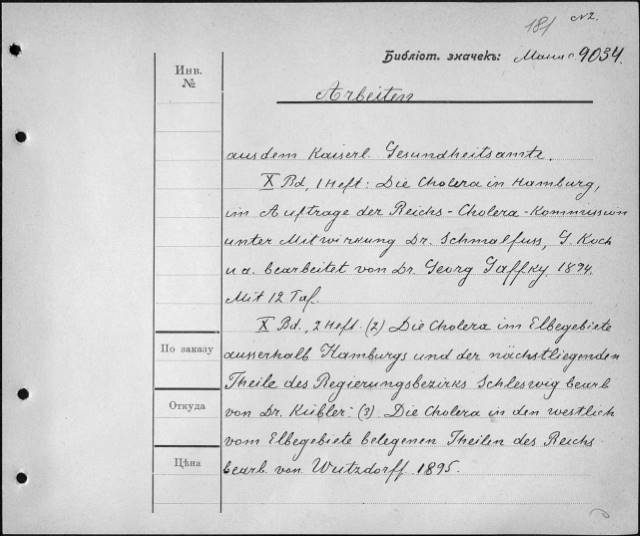 181 N2.
Библіот. значекъ: Машис 9034.
Инв.
№
Arbeiten
aus dem Kaiserl. Gesundheitsamte.
X Bd, 1 Heft: Die Cholera in Hamburg,
im Auftrage der Reichs-Cholera-Kommission
unter Mitwirkung Dr. Schmalfuss, G. Koch
u a. bearbeitet von Dr. Georg Gaffky. 1894.
Mit 12 Taf.
X Bd., 2 Heft. (2) Die Cholera im Elbegebiete
По заказу
ausserhalb Hamburgs und der nächstliegenden
Theile des Regierungsbezirks Schleswig bearb
Откуда
von Dr. Kübler: (3). Die Cholera in den westlich
vom Elbegebiete belegenen Theilen des Reichs
Цѣна
bearb. von Wutzdorff. 1895.